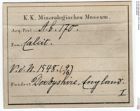 K.K. Mineralogisches Museum.
Acq. Post A.b. 170.
Name: Calcit.
Fundort: Derbyshire, England.
I